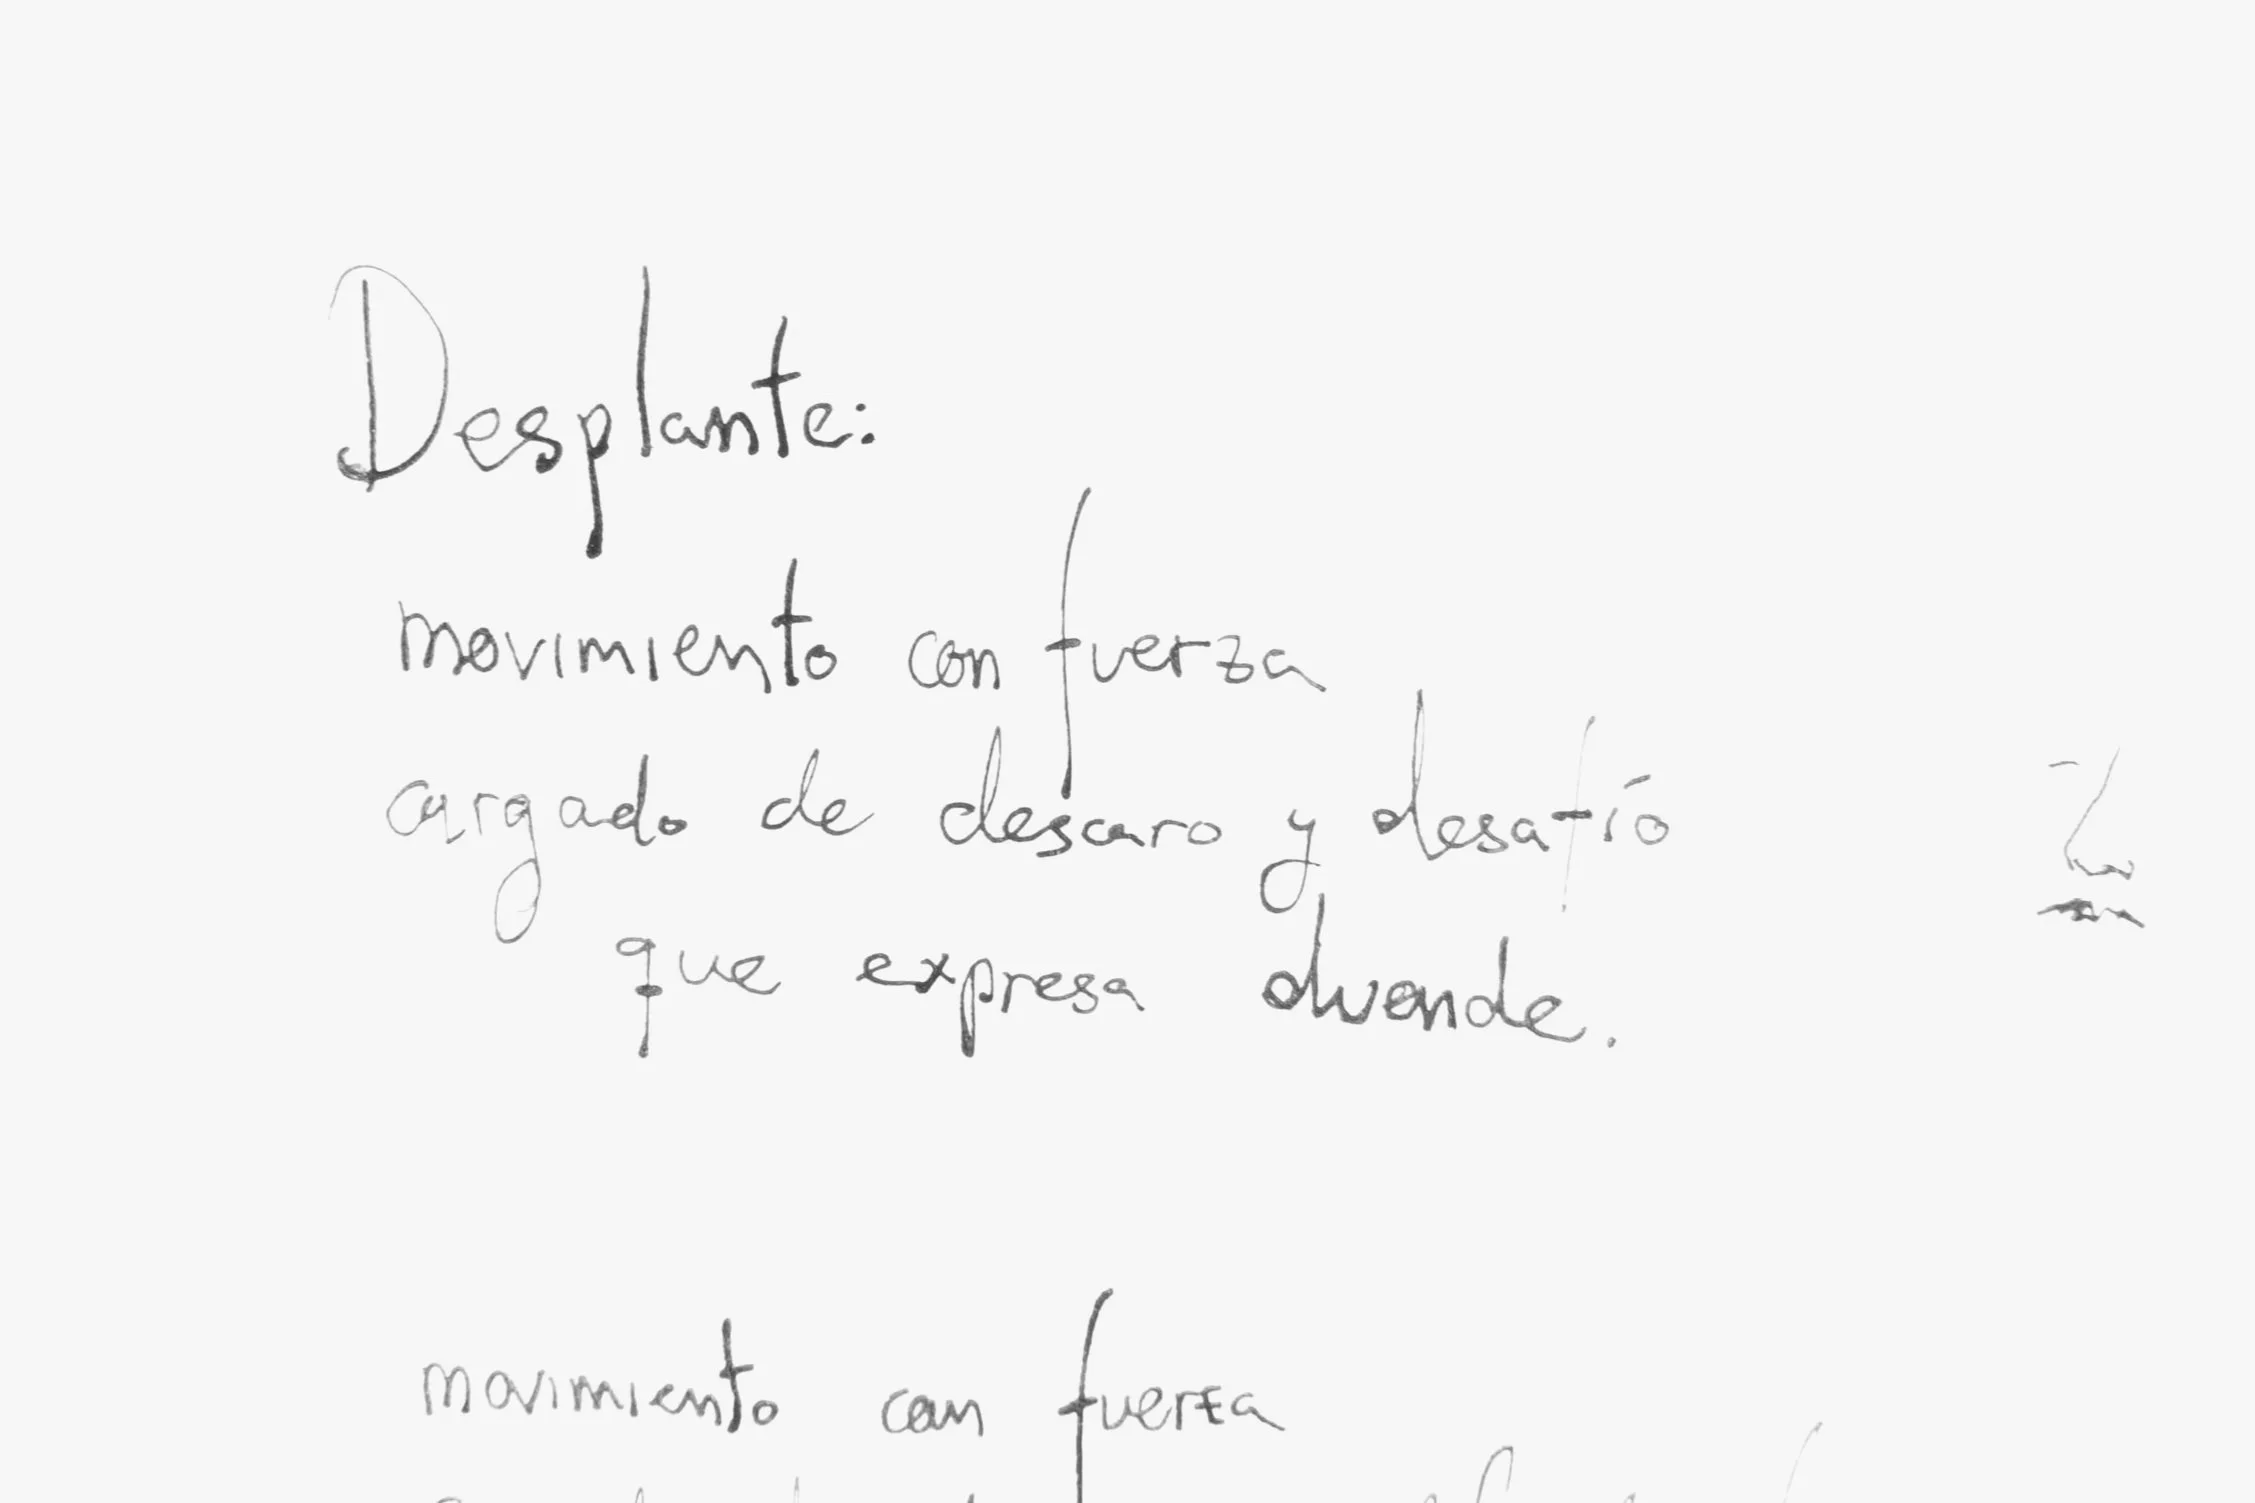 Desplante:
movimiento con fuerza
cargado de descaro y desafío
que expresa duende.
movimiento con fuerza